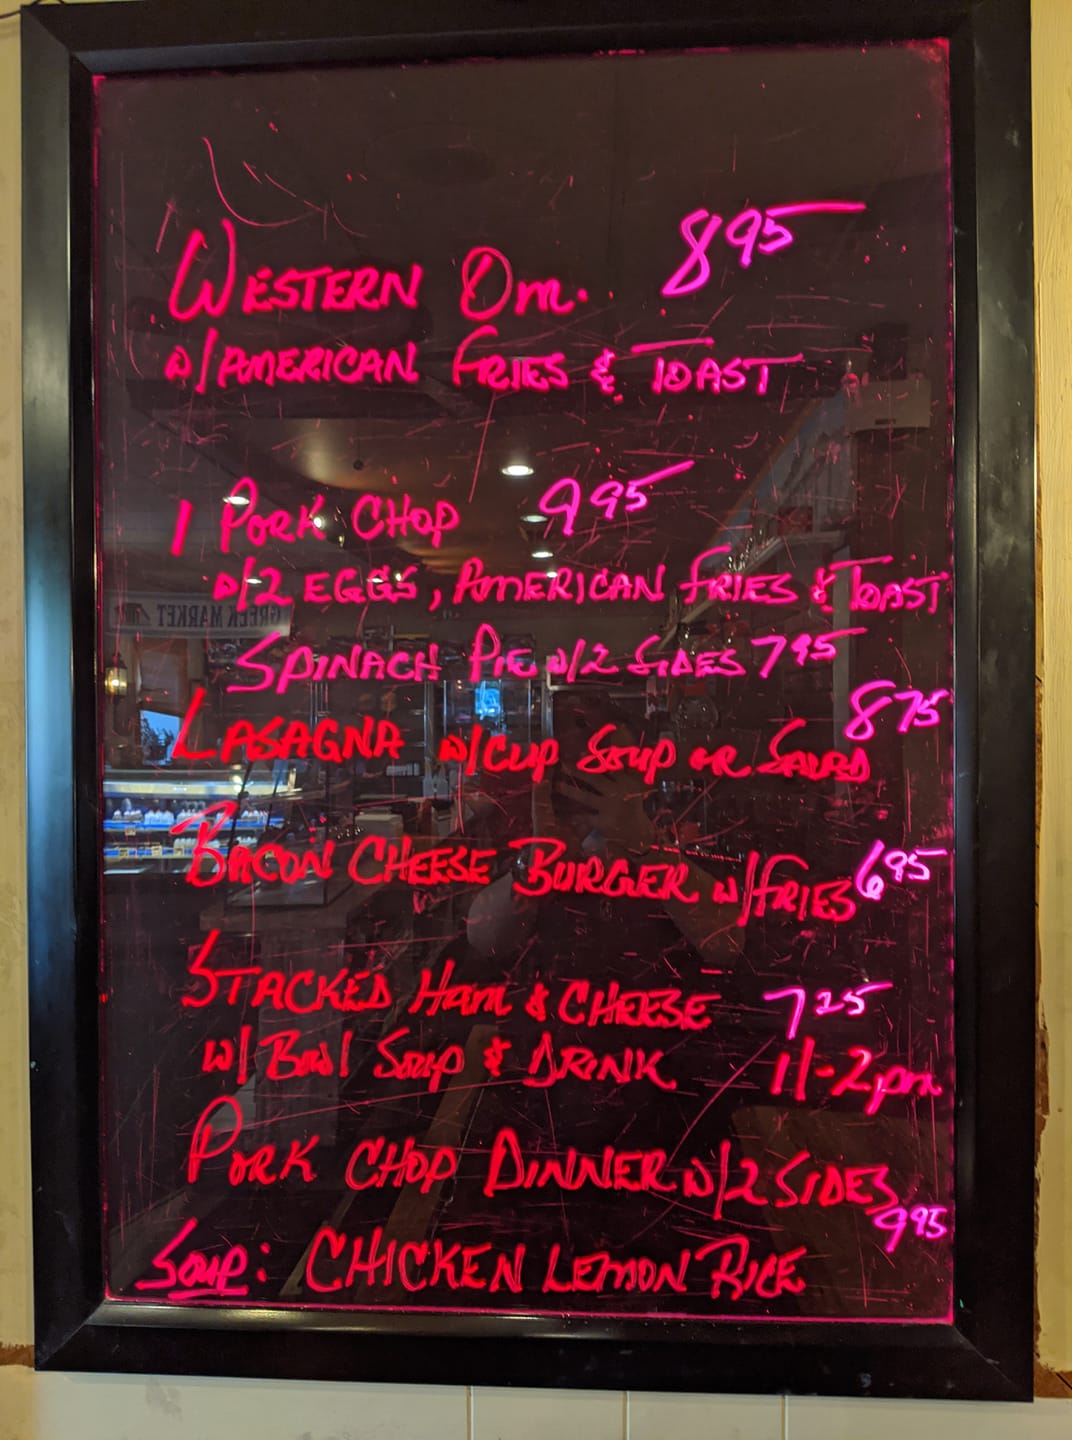 WESTERN Om. 895
w/AMERICAN FRIES & TOAST
1 PORK CHOP 995
w/2 EGGS, AMERICAN FRIES & TOAST
SPINACH PIE w/2 SIDES 795
LASAGNA w/CUP SOUP OR SALAD 875
BACON CHEESE BURGER w/FRIES 695
STACKED HAM & CHEESE 725
w/ BOWL SOUP & DRINK 11-2pm
PORK CHOP DINNER w/2 SIDES
995
SOUP: CHICKEN LEMON RICE
GREEK MARKET